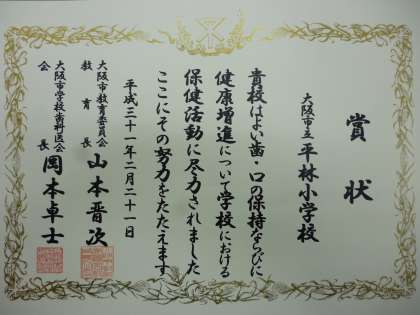 賞状
大阪市立平林小学校
貴校はよい歯・口の保持ならびに
健康増進について学校における
保健活動に尽力されました
ここにその努力をたたえます
平成三十一年二月二十一日
大阪市教育委員会
教育長 山本晋次
大阪市学校歯科医会
会長 岡本卓士